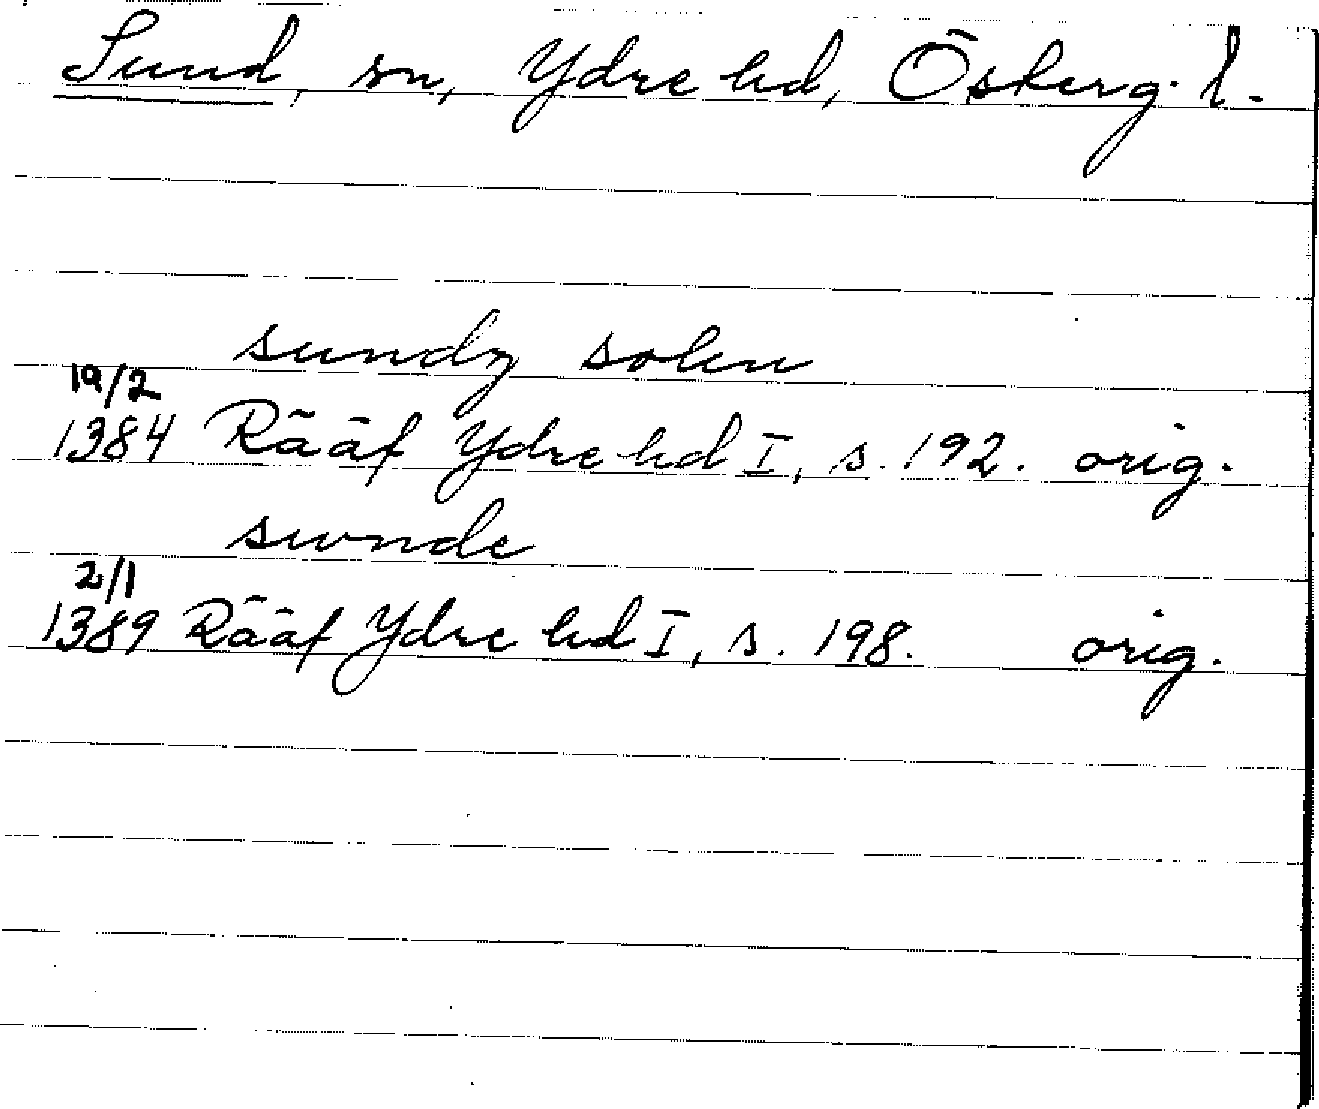 Sund, sn, Ydre hd, Österg. l.
sundz sokn
19/2
1384 Rääf Ydre hd I, s. 192. orig.
swnde
2/1
1389 Rääf Ydre hd I, s. 198. orig.